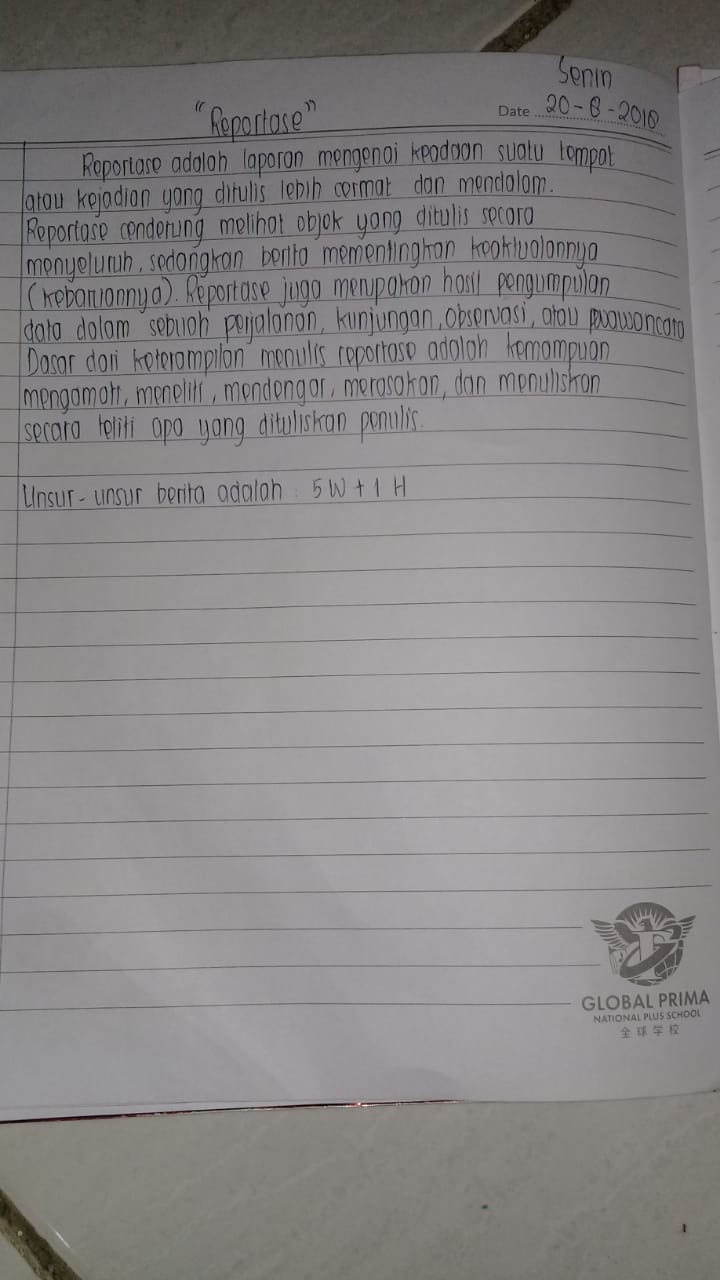 Senin
"Reportase"
Date 20-8-2018
Reportase adalah laporan mengenai keadaan suatu tempat
atau kejadian yang ditulis lebih cermat dan mendalam.
Reportase cenderung melihat objek yang ditulis secara
menyeluruh, sedangkan berita mementingkan keaktualannya
(kebaruannya). Reportase juga merupakan hasil pengumpulan
data dalam sebuah perjalanan, kunjungan, observasi, atau
Dasar dari keterampilan menulis reportase adalah kemampuan
mengamati, meneliti, mendengar, merasakan, dan menuliskan
secara teliti apa yang dituliskan penulis.
Unsur-unsur berita adalah : 5W + 1 H
GLOBAL PRIMA
NATIONAL PLUS SCHOOL
全球学校